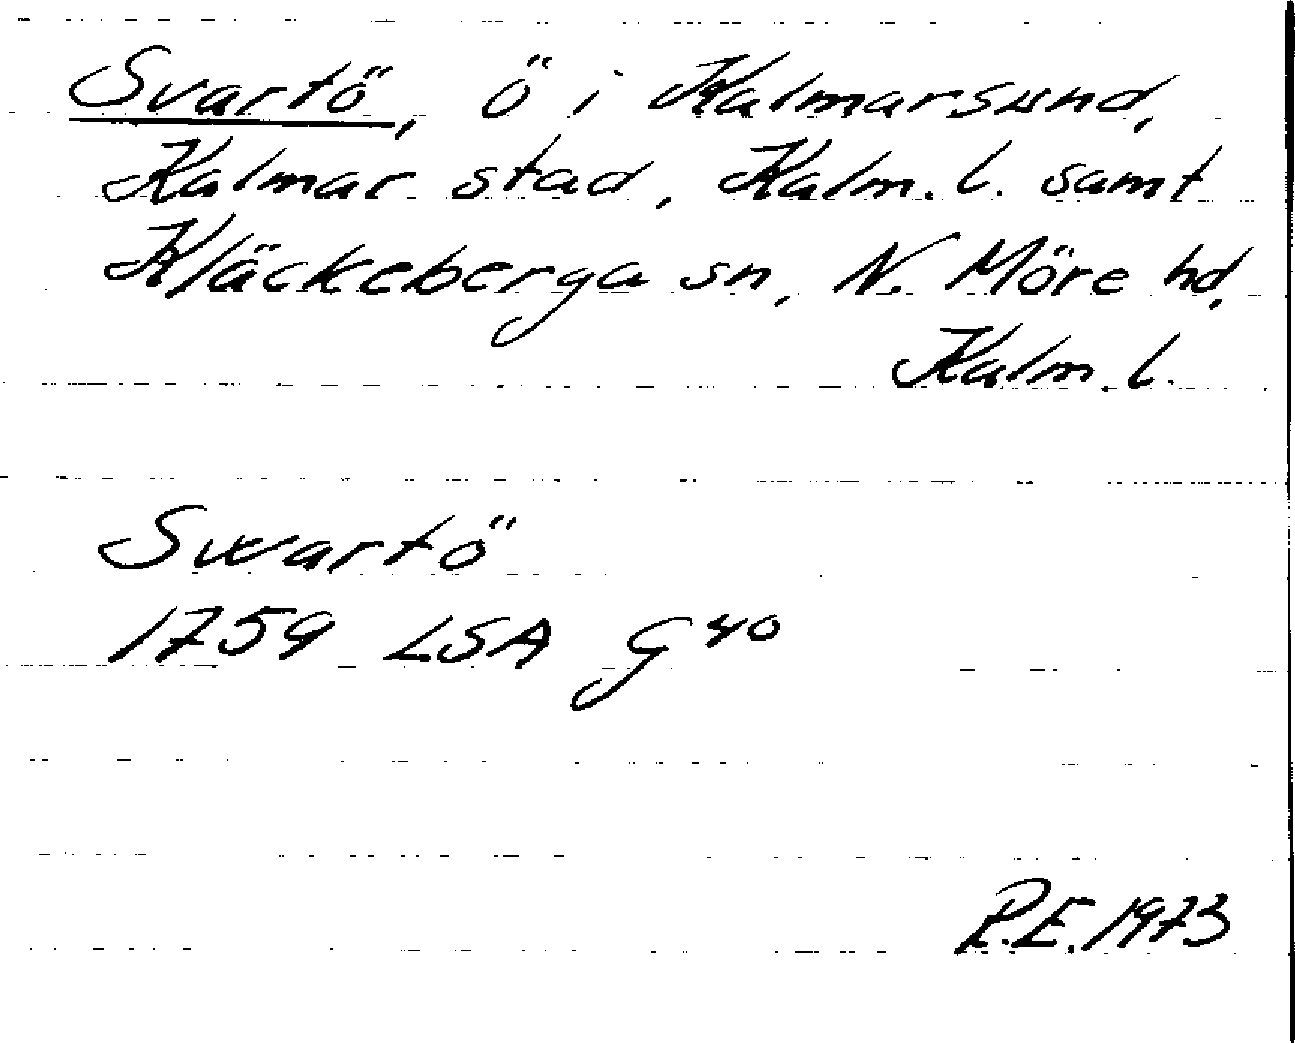 Svartö, ö i Kalmarsund,
Kalmar stad, Kalm. l. samt
Kläckeberga sn, N. Möre hd,
Kalm. l.
Swartö
1759 LSA G 40
P.E. 1973